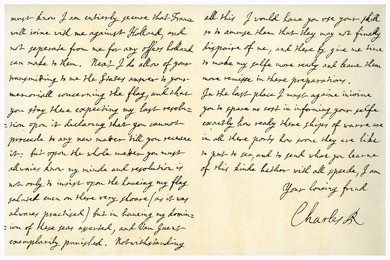 must know I am entirely secure that France
will joine with me against Holland, and
not seperate from me for any offers holland
can make to them. Next I do allow of your
transmitting to me the States answer to your
memoriall concerning the flag, and that
you stay there expecting my last resolu-
tion upon it declaring that you cannot
proceede to any new matter till you receave
it: but upon the whole matter you must
alwaies know my minde and resolution is
not only to insist upon the haveing my flag
saluted even on there very shoare (as it was
alwaies practised) but in haveing my domin-
ion of these seas asserted, and Van Guent
exemplarily punished. Notwithstanding
all this I would have you use your skill
so to amuse them that they may not finally
dispaire of me, and thereby give me time
to make my selfe more ready and leave them
more remisse in there preparations.
In the last place I must againe injoine
you to spare no cost in informing your selfe
exactly how ready there ships of warre are
in all there ports how soone they are like
to put to sea, and to send what you learne
of this kinde hether with all speede, I am
Your loving frind
Charles R